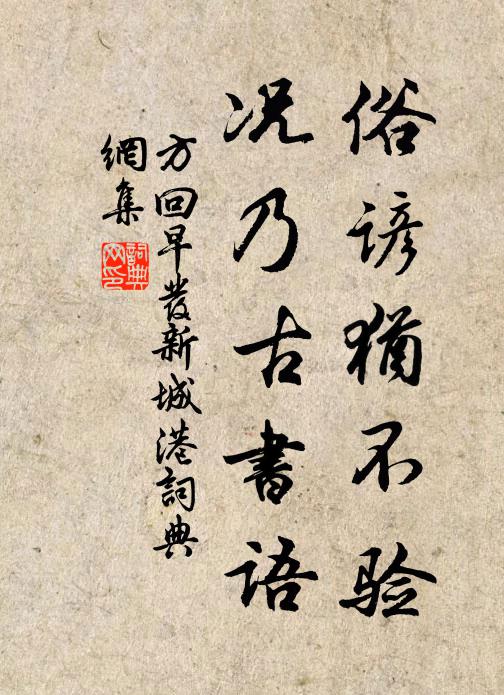 俗谚犹不验
况乃古書语
方回早發新城港詞典
網集
詞典
网印